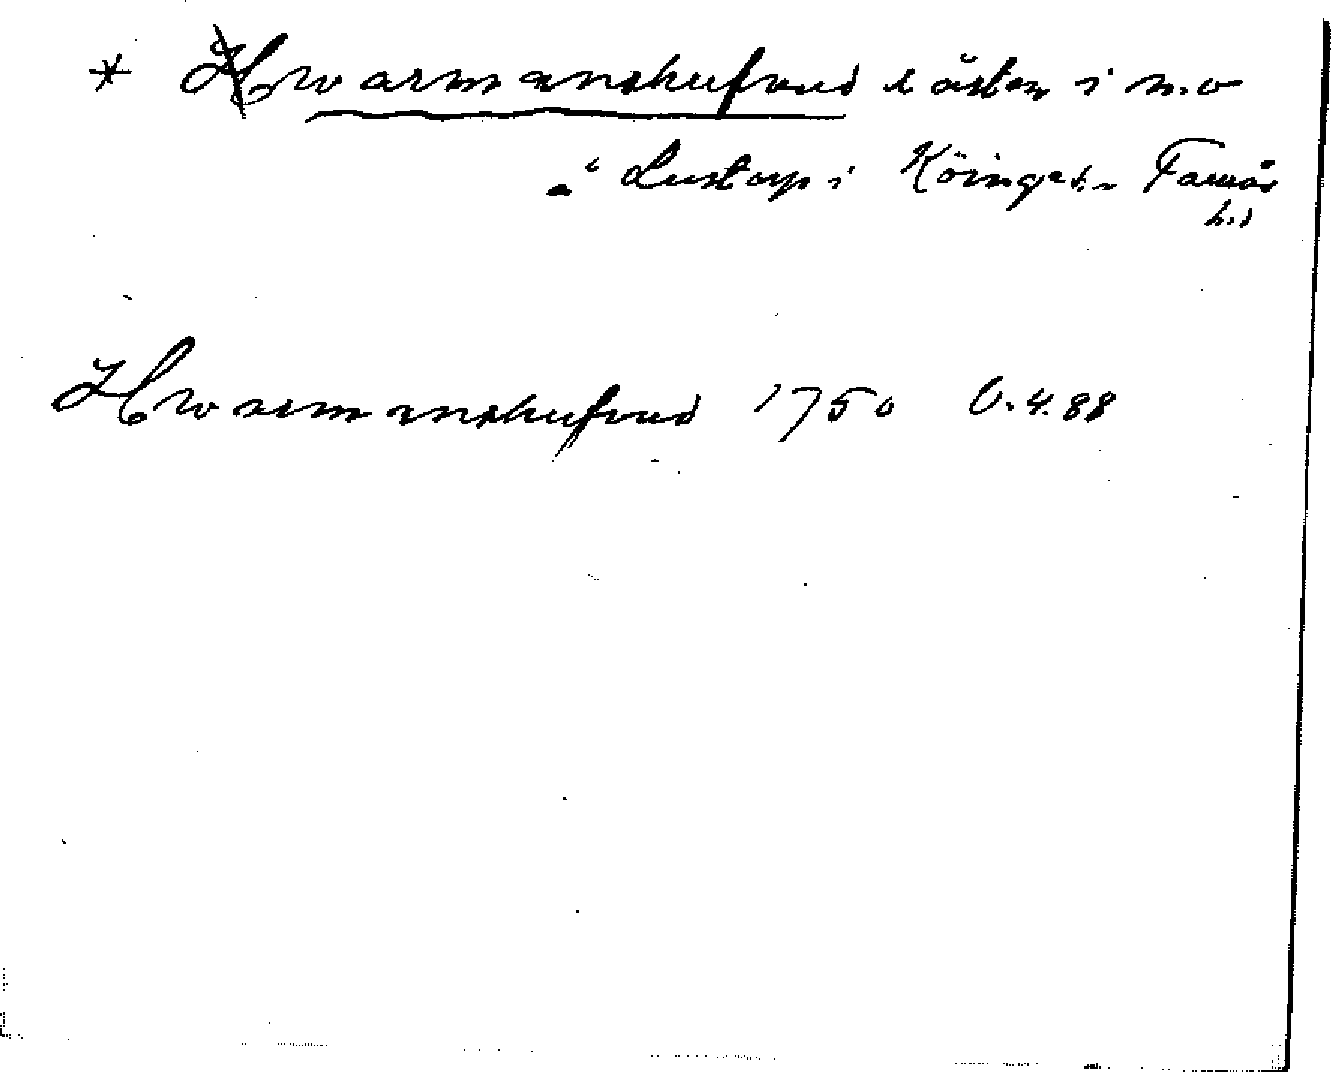 * Hwarmanshufvud västen i n.o
"Lustorp i Köinge s.n Faurås
h.d
Hwarmanshufvud 1750 C.4.88